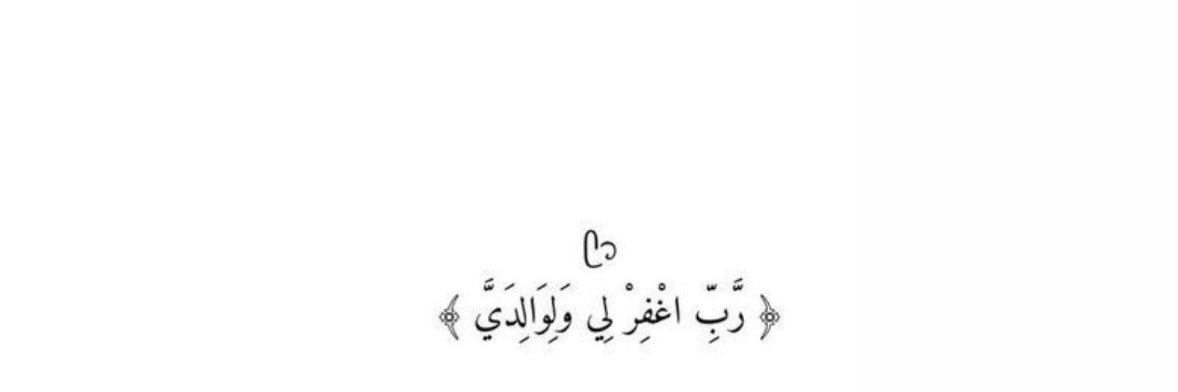 ﴿ رَّبِّ اغْفِرْ لِي وَلِوَالِدَيَّ ﴾